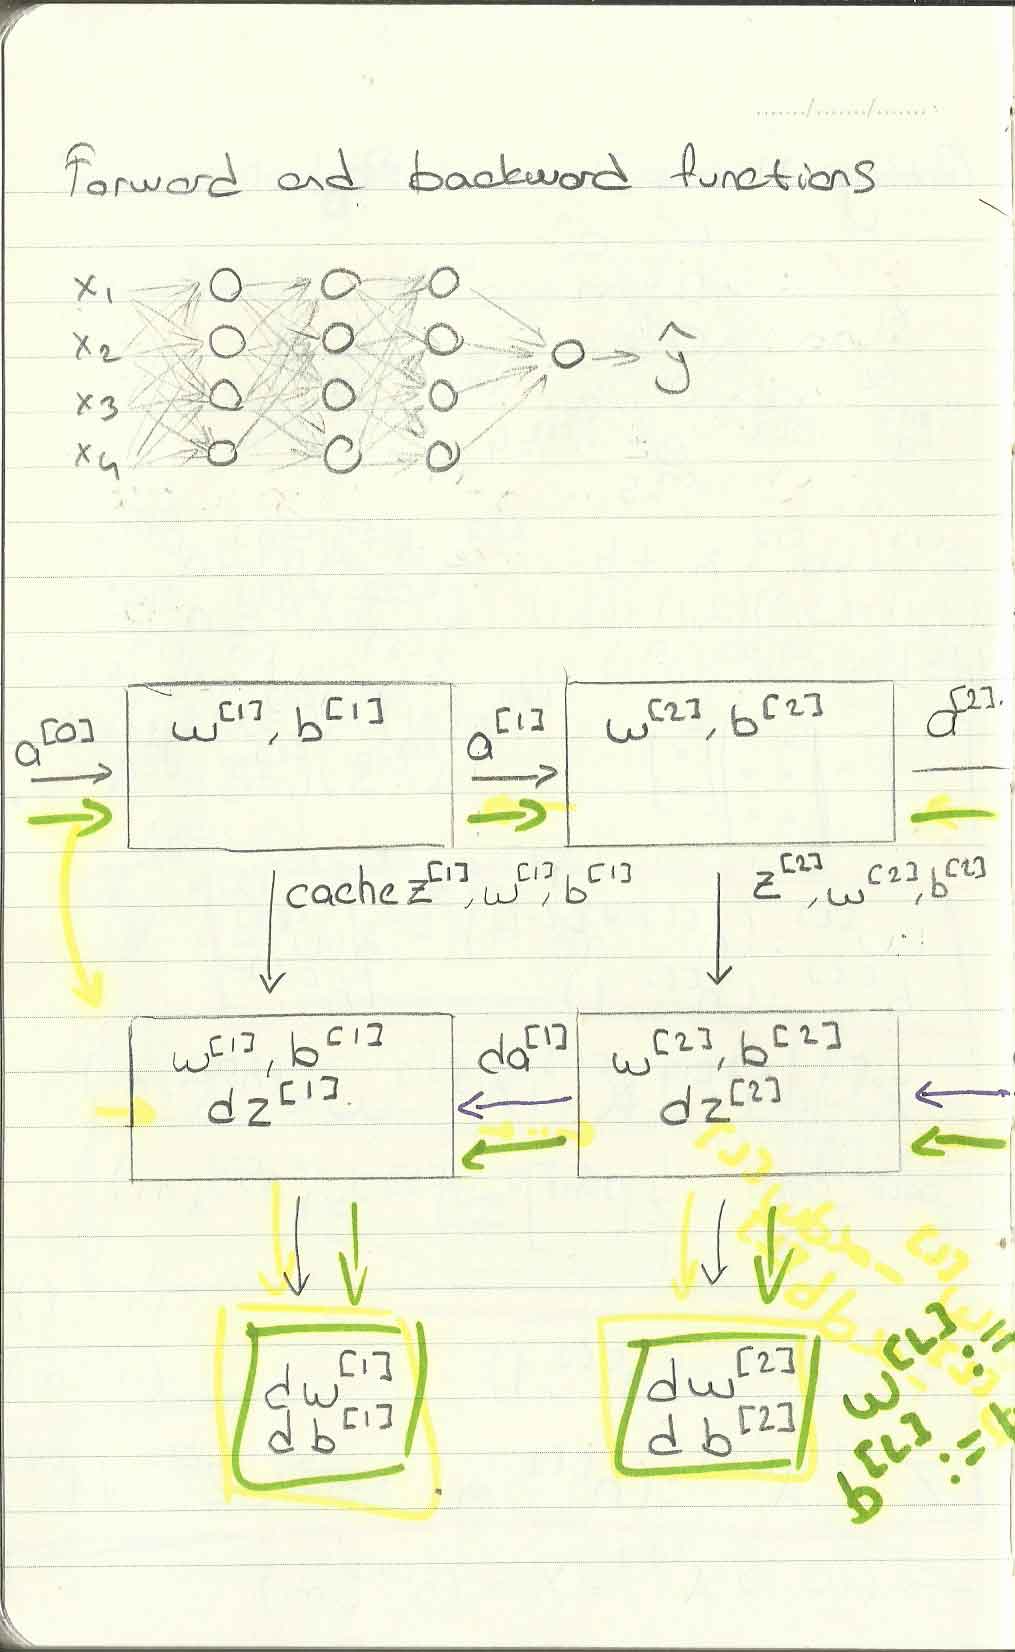 Forward and backward functions
x1
x2
x3
x4
ŷ
a[0] w[1], b[1] a[1] w[2], b[2] a[2]
cache z[1], w[1], b[1] z[2], w[2], b[2]
w[1], b[1] da[1] w[2], b[2]
dz[1] dz[2]
dw[1] dw[2]
db[1] db[2]
w[L] :=
b[L] :=